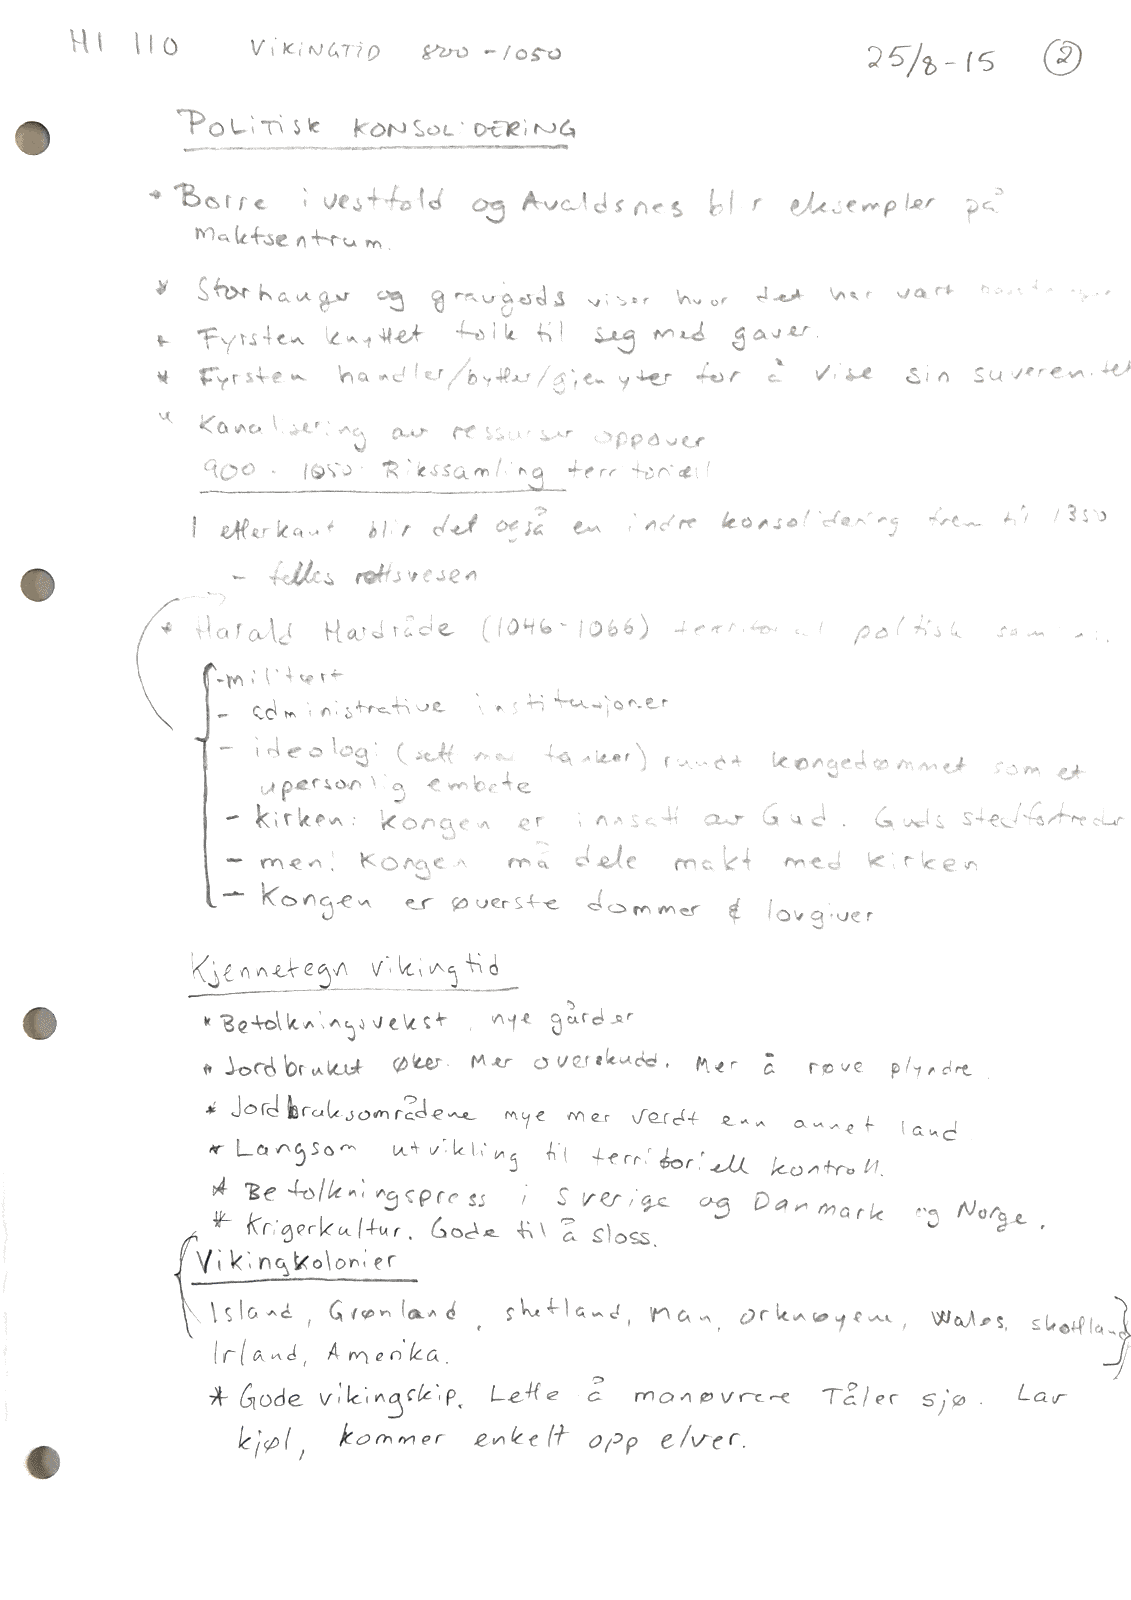 HI 110 VIKINGTID 800-1050 25/8-15 2
POLITISK KONSOLIDERING
* Borre i vestfold og Avaldsnes blir eksempler på
maktsentrum.
* Storhauger og gravgods viser hvor det har vært
* Fyrsten knyttet folk til seg med gaver.
* Fyrsten handler/bytter/gjenyter for å vise sin suverenitet
* Kanalisering av ressurser oppover
900 - 1050: Rikssamling territoriell
I etterkant blir det også en indre konsolidering frem til 1350
- felles rettsvesen
* Harald Hardråde (1046-1066) territorial politisk
- militært
- administrative institusjoner
- ideologi (sett med tanker) rundt kongedømmet som et
upersonlig embete
- kirken: kongen er innsatt av Gud. Guds stedfortreder
- men: Kongen må dele makt med kirken
- Kongen er øverste dommer & lovgiver
Kjennetegn vikingtid
* Befolkningsvekst, nye gårder
* Jordbruket øker. Mer overskudd. Mer å røve plyndre
* Jordbruksområdene mye mer verdt enn annet land
* Langsom utvikling til territoriell kontroll.
* Befolkningspress i Sverige og Danmark og Norge.
* Krigerkultur. Gode til å sloss.
Vikingkolonier
Island, Grønland, shetland, Man, orknøyene, Wales, skottland
Irland, Amerika.
* Gode vikingskip. Lette å manøvrere Tåler sjø. Lav
kjøl, kommer enkelt opp elver.